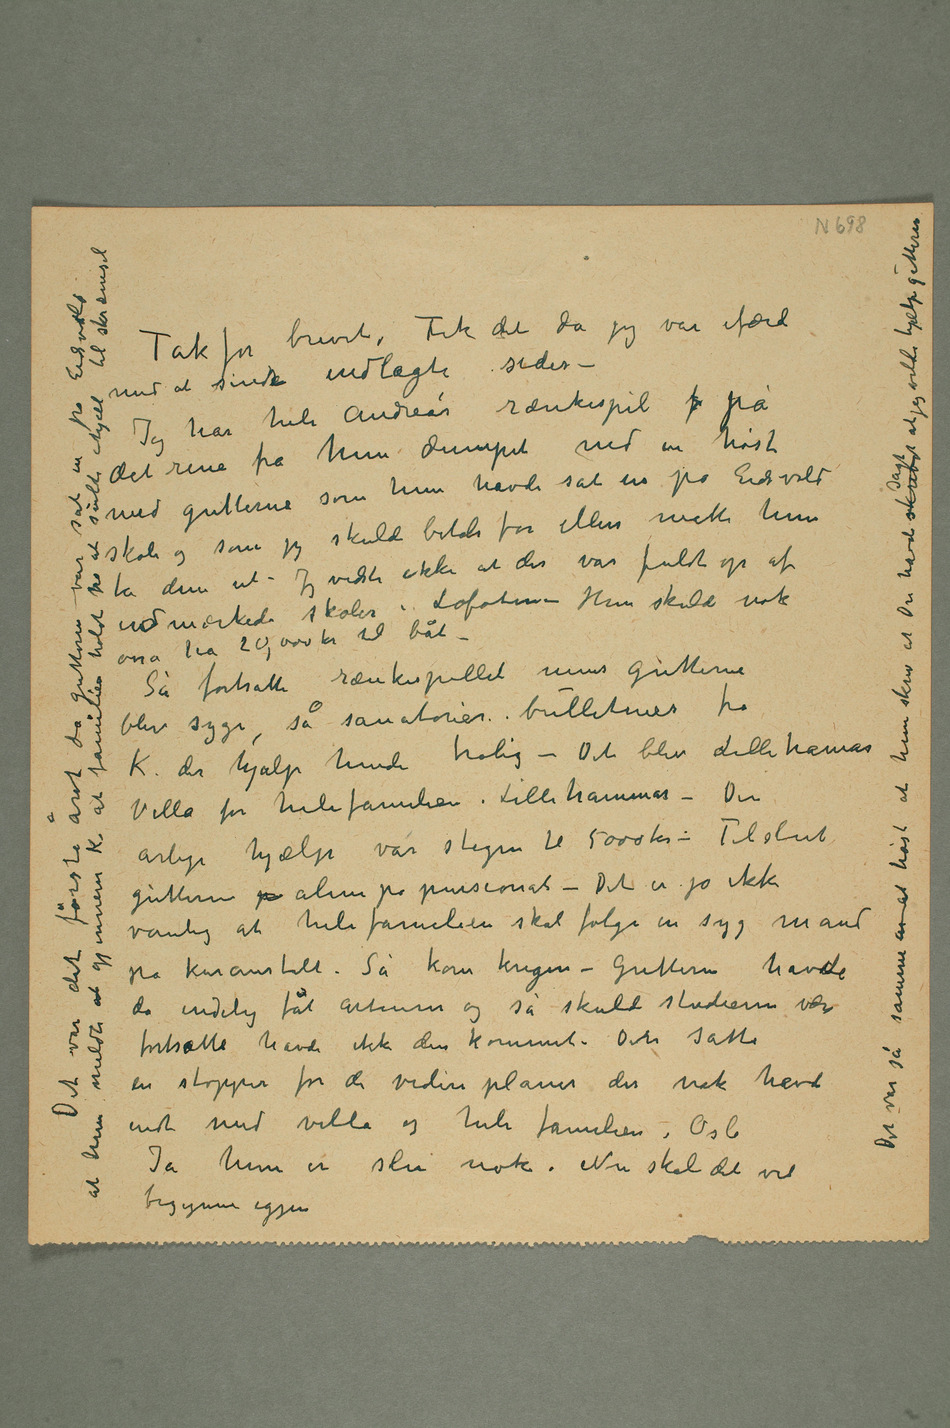 N 698
Tak for brevet. Fik det da jeg var ifærd
med at sinde indlagte sider –
Jeg har hele Andreás rænkespil på
det rene fra hun dumpet ned en høst
med gutterne som hun havde sat in på Eidsvold
skole og som jeg skulde betale for ellers måtte hun
ta dem ut – Jeg vidste ikke at der var fuldt op af
udmærkede skoler i Lofoten – Hun skulde nok
osså ha 20,000 kr til båt –
Så fortsatte rænkespillet mens gutterne
blev syge, så sanatorier. bulletiner fra
K. der hjalp hende trolig – Det blev Lillehamar
Villa for hele familien i Lillehammar – Den
årlige hjælp var stegen til 5000 kr – Tilslut
gutterne alene på pensionat – Det er jo ikke
vanlig at hele familien skal følge en syg mand
på kuranstalt. Så kom krigen – Gutterne havde
da endelig fåt artium og så skulde studierne være
fortsatte havde ikke den kommet. Dette satte
en stopper for de videre planer der nok havde
endt med villa og hele familien i Oslo
Ja hun er slu nok. Nu skal det vel
begynne igjen
Det var det første året da gutterne var sat in på Eidsvold
at hun meldte gjennem K. at familien holdt på at sulte ihjæl til skræmsel
Det var så samme høst at hun skrev at Du havde sagt at jeg vilde hjælpe gutterne